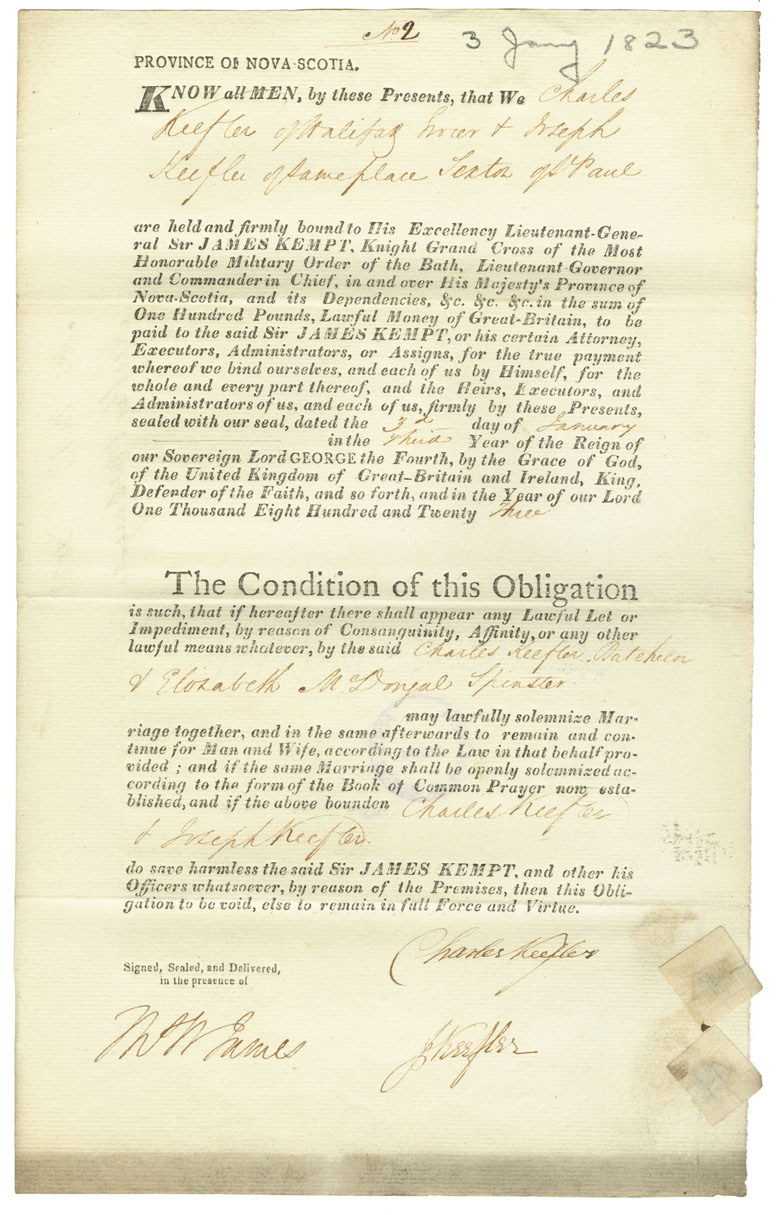 No 2
3 Jany 1823
PROVINCE OF NOVA-SCOTIA.
KNOW all MEN, by these Presents, that We Charles
Keefler of Halifax Grocer & Joseph
Keefler of same place Sexton of St Paul
are held and firmly bound to His Excellency Lieutenant-Gene-
ral Sir JAMES KEMPT, Knight Grand Cross of the Most
Honorable Military Order of the Bath, Lieutenant-Governor
and Commander in Chief, in and over His Majesty's Province of
Nova-Scotia, and its Dependencies, &c. &c. &c. in the sum of
One Hundred Pounds, Lawful Money of Great-Britain, to be
paid to the said Sir JAMES KEMPT, or his certain Attorney,
Executors, Administrators, or Assigns, for the true payment
whereof we bind ourselves, and each of us by Himself, for the
whole and every part thereof, and the Heirs, Executors, and
Administrators of us, and each of us, firmly by these Presents,
sealed with our seal, dated the 3d day of January
in the third Year of the Reign of
our Sovereign Lord GEORGE the Fourth, by the Grace of God,
of the United Kingdom of Great-Britain and Ireland, King,
Defender of the Faith, and so forth, and in the Year of our Lord
One Thousand Eight Hundred and Twenty three
The Condition of this Obligation
is such, that if hereafter there shall appear any Lawful Let or
Impediment, by reason of Consanguinity, Affinity, or any other
lawful means whatever, by the said Charles Keefler Batchelor
& Elizabeth McDougal Spinster
may lawfully solemnize Mar-
riage together, and in the same afterwards to remain and con-
tinue for Man and Wife, according to the Law in that behalf pro-
vided ; and if the same Marriage shall be openly solemnized ac-
cording to the form of the Book of Common Prayer now esta-
blished, and if the above bounden Charles Keefler
& Joseph Keefler.
do save harmless the said Sir JAMES KEMPT, and other his
Officers whatsoever, by reason of the Premises, then this Obli-
gation to be void, else to remain in full Force and Virtue.
Charles Keefler
Signed, Sealed, and Delivered,
in the presence of
J Keefler
James